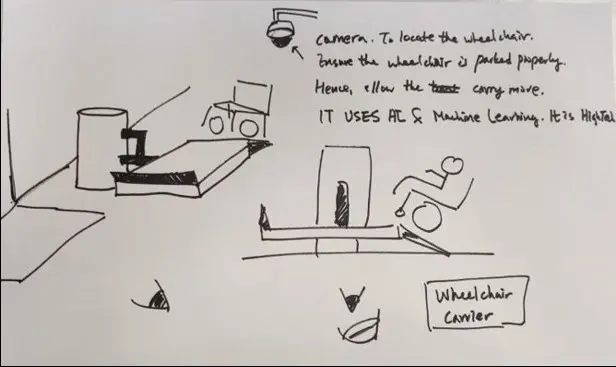 camera. To locate the wheelchair.
Ensure the wheelchair is parked properly.
Hence, allow the carry more.
IT USES AI & Machine Learning. It is HighTech
Wheelchair
Carrier